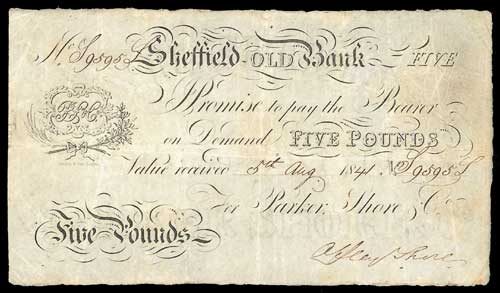 No S9595L Sheffield OLD Bank FIVE
I Promise to pay the Bearer
on Demand FIVE POUNDS
Value received 5th Aug 1841 No S9595L
For Parker, Shore & Co
Five Pounds
Shore